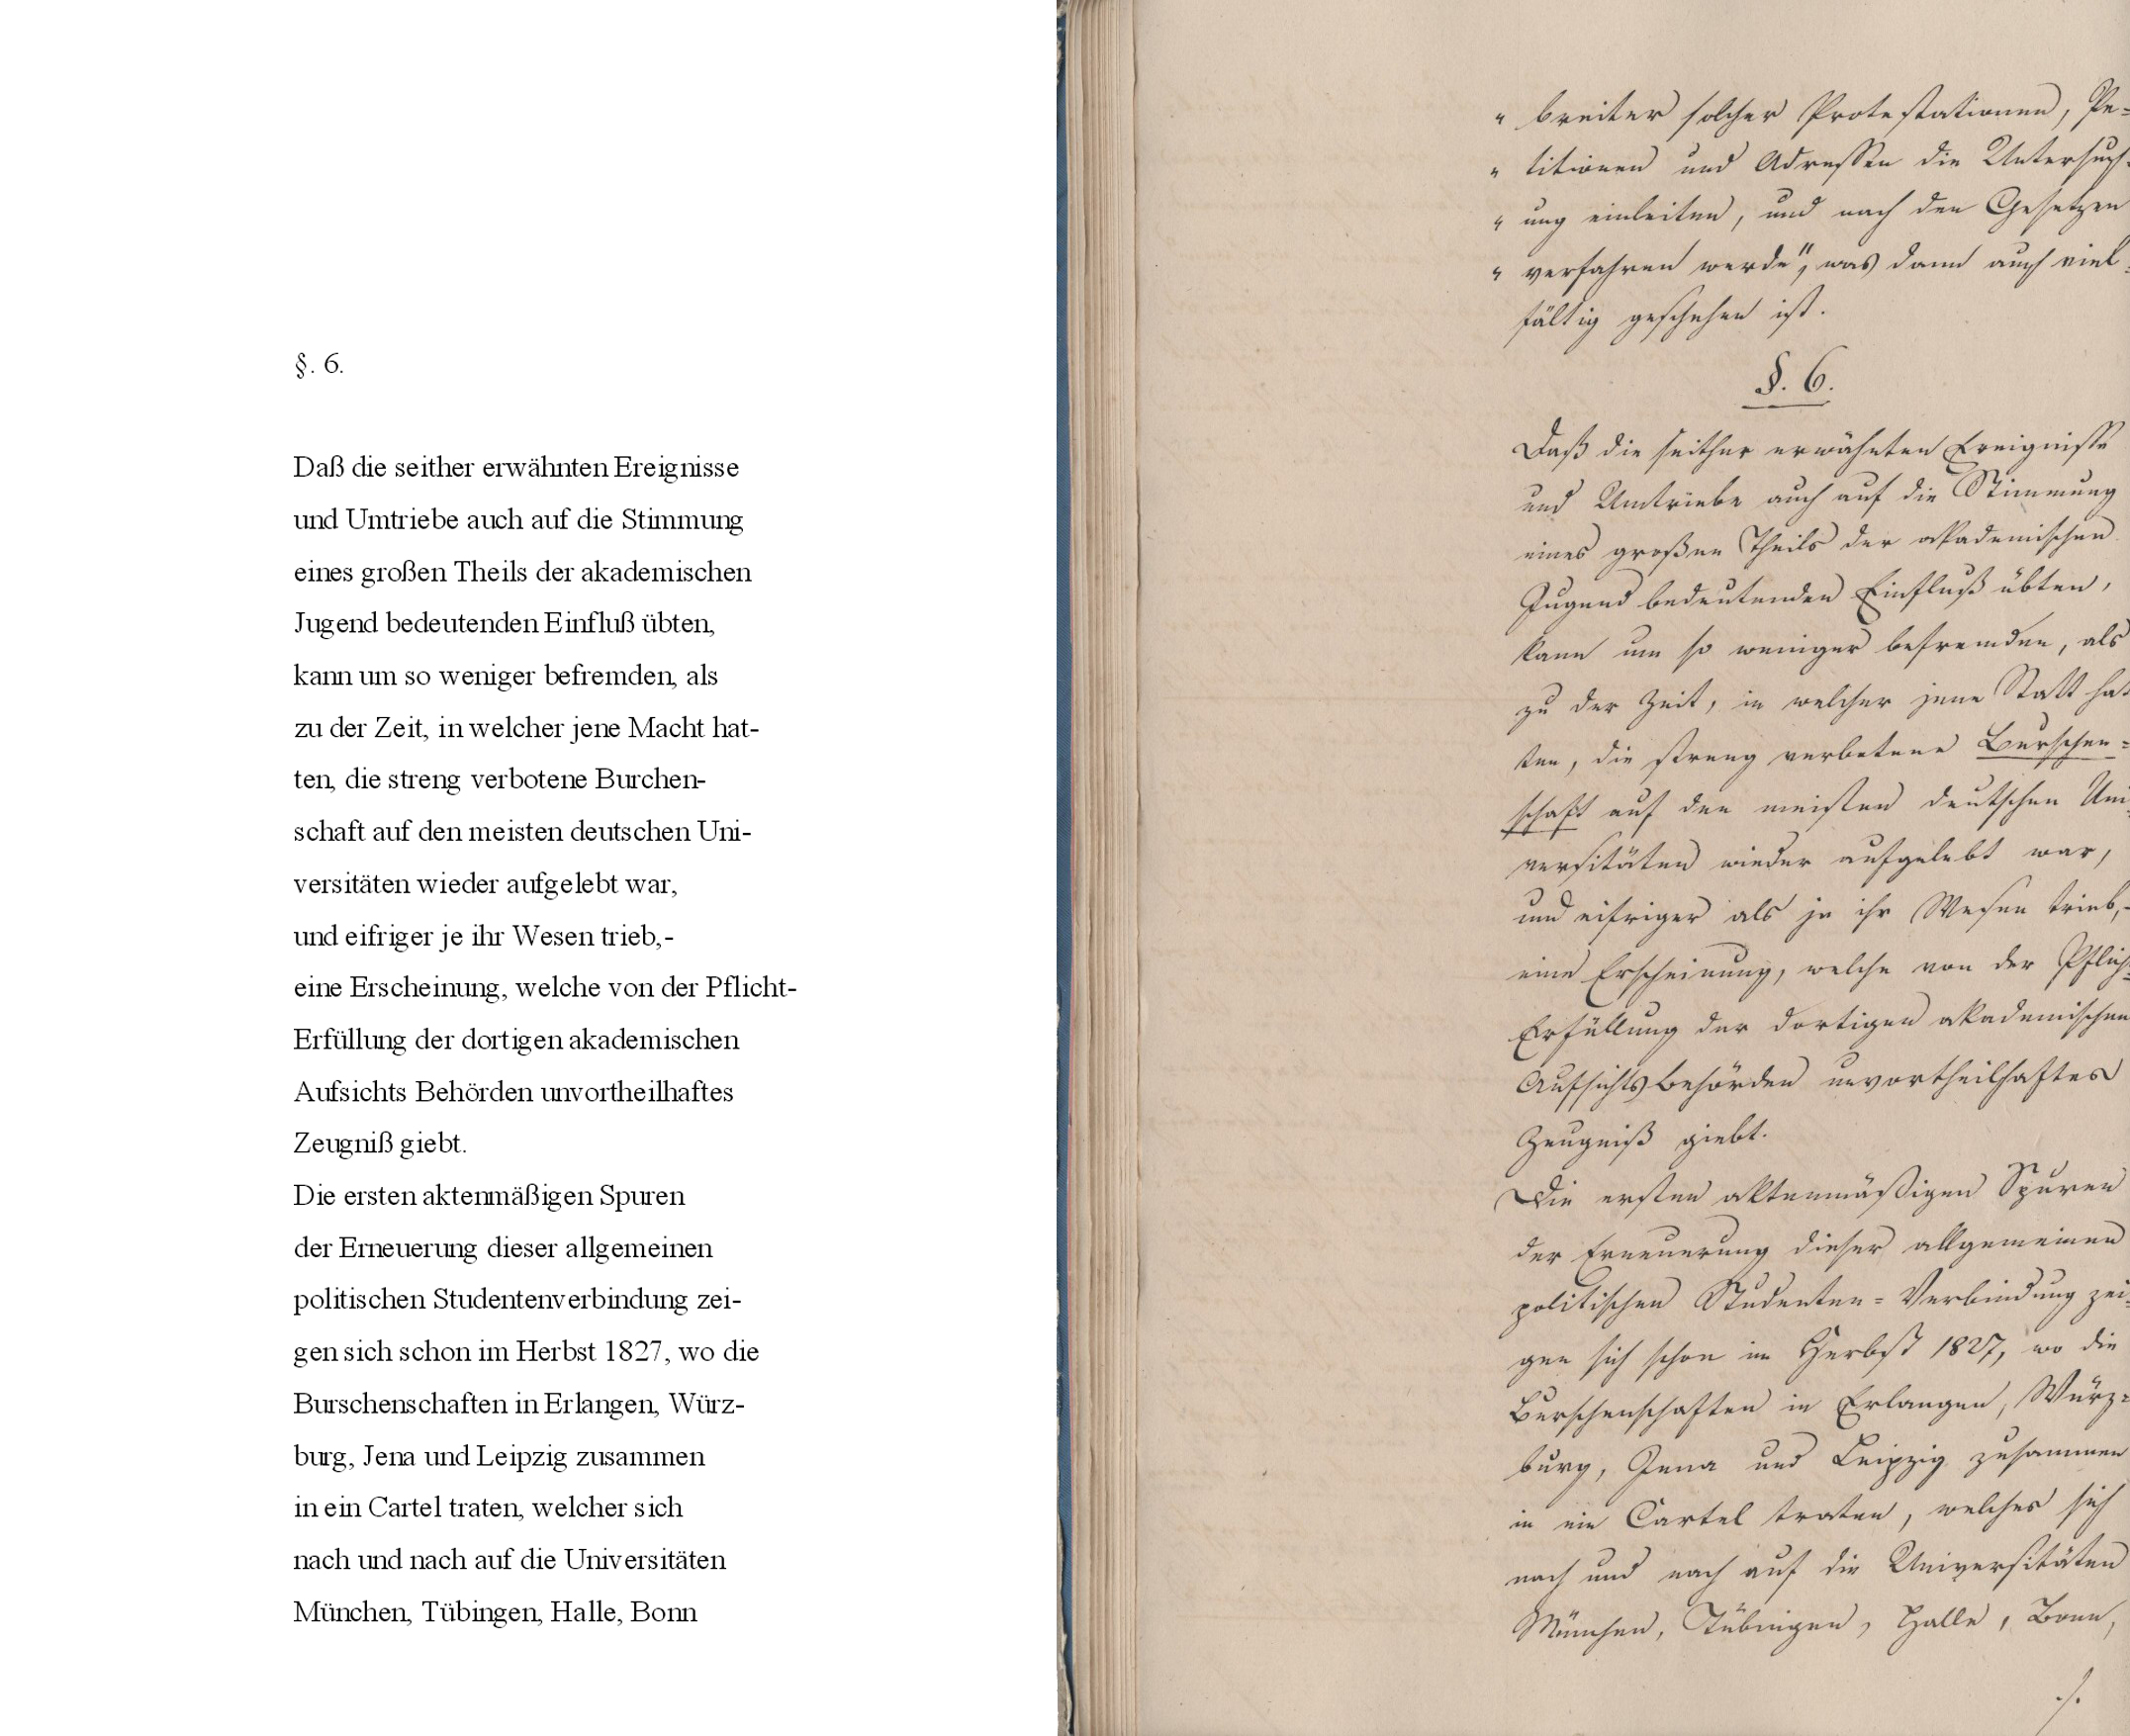 §. 6.
Daß die seither erwähnten Ereignisse
und Umtriebe auch auf die Stimmung
eines großen Theils der akademischen
Jugend bedeutenden Einfluß übten,
kann um so weniger befremden, als
zu der Zeit, in welcher jene Macht hat-
ten, die streng verbotene Burchen-
schaft auf den meisten deutschen Uni-
versitäten wieder aufgelebt war,
und eifriger je ihr Wesen trieb,-
eine Erscheinung, welche von der Pflicht-
Erfüllung der dortigen akademischen
Aufsichts Behörden unvortheilhaftes
Zeugniß giebt.
Die ersten aktenmäßigen Spuren
der Erneuerung dieser allgemeinen
politischen Studentenverbindung zei-
gen sich schon im Herbst 1827, wo die
Burschenschaften in Erlangen, Würz-
burg, Jena und Leipzig zusammen
in ein Cartel traten, welcher sich
nach und nach auf die Universitäten
München, Tübingen, Halle, Bonn
" breiter solcher Protestationen, Pe=
" titionen und Adressen die Untersuch=
" ung einleiten, und nach den Gesetzen
" verfahren werde", was dann auch viel=
fältig geschehen ist.
§. 6.
Daß die seither erwähnten Ereignisse
und Umtriebe auch auf die Stimmung
eines großen Theils der akademischen
Jugend bedeutenden Einfluß übten,
kann um so weniger befremden, als
zu der Zeit, in welcher jene Statt hat
ten, die streng verbotene Burschen=
schaft auf den meisten deutschen Uni=
versitäten wieder aufgelebt war,
und eifriger als je ihr Wesen trieb,-
eine Erscheinung, welche von der Pflich=
Erfüllung der dortigen akademischen
Aufsichtsbehörden unvortheilhaftes
Zeugniß giebt.
Die ersten aktenmäßigen Spuren
der Erneuerung dieser allgemeinen
politischen Studenten=Verbindung zei=
gen sich schon im Herbst 1827, wo die
Burschenschaften in Erlangen, Würz=
burg, Jena und Leipzig zusammen
in ein Cartel traten, welches sich
nach und nach auf die Universitäten
München, Tübingen, Halle, Bonn,
./.